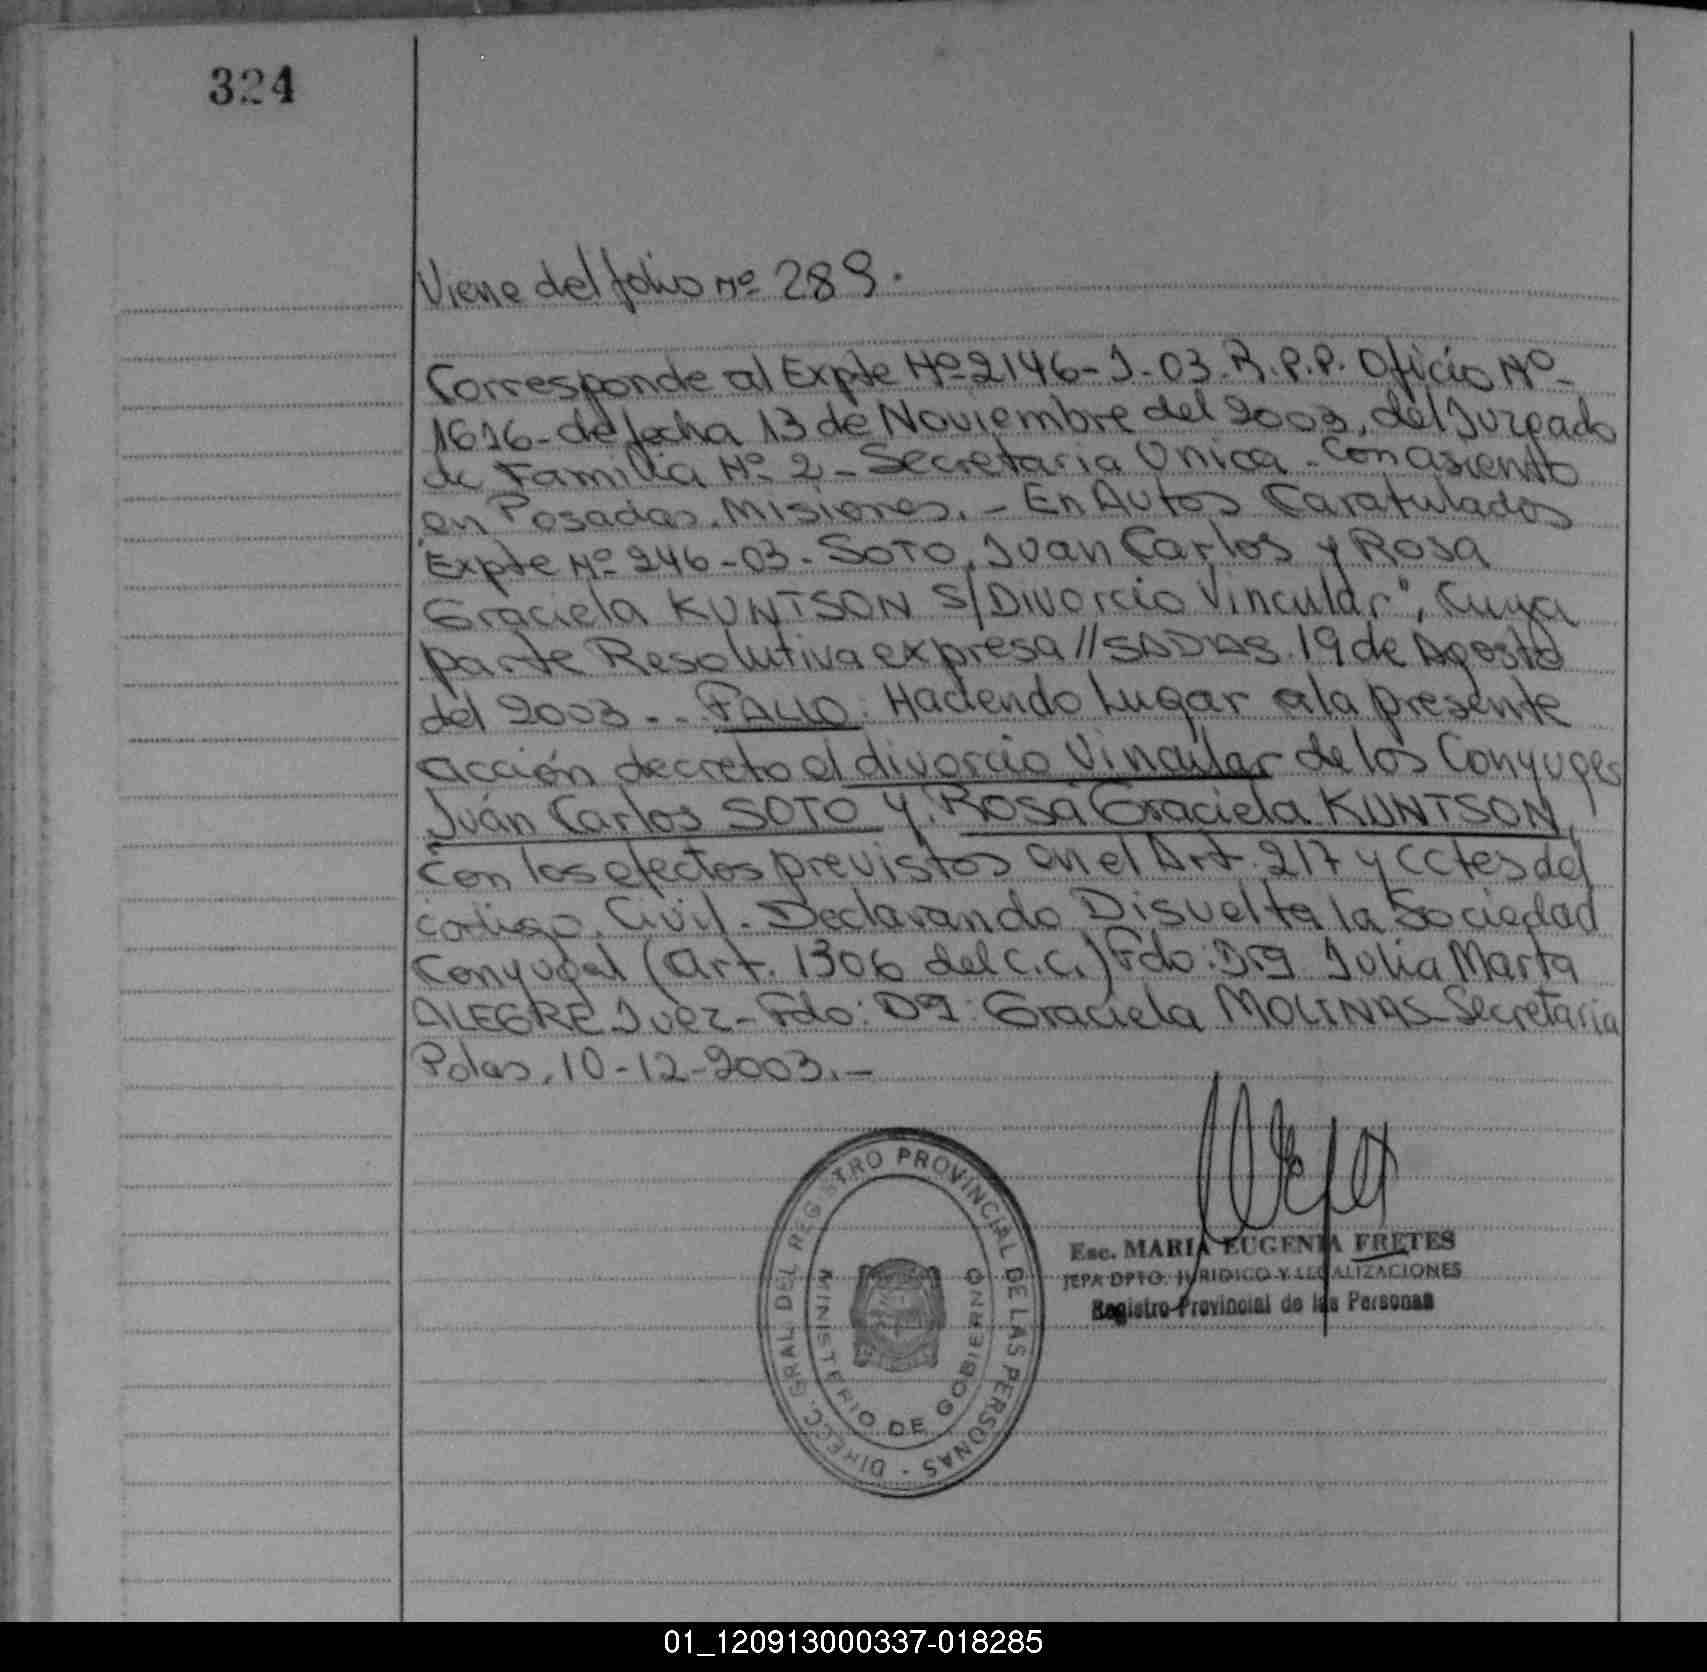 324
Viene del folio Nº 289.
Corresponde al Expte Nº 2146-J-03. R.P.P. Oficio Nº-
1616- de fecha 13 de Noviembre del 2003, del Juzgado
de Familia Nº 2 - Secretaria Unica - Con asiento
en Posadas, Misiones. - En Autos Caratulados
"Expte Nº 246-03- SOTO, Juan Carlos y Rosa
Graciela KUNTSON S/Divorcio Vincular", Cuya
parte Resolutiva expresa // SADAS. 19 de Agosto
del 2003 - .. FALLO: Haciendo Lugar a la presente
acción decreto el divorcio Vincular de los Conyuges
Juán Carlos SOTO y Rosa Graciela KUNTSON,
Con los efectos previstos en el Art. 217 y cctes del
codigo. Civil. Declarando Disuelta la Sociedad
Conyugal (art. 1306 del C.C.) Fdo: Drª Julia Marta
ALEGRE Juez - Fdo: Dª: Graciela MOLINAS Secretaria
Pdas, 10-12-2003.-
DIRECC. GRAL. DEL REGISTRO PROVINCIAL DE LAS PERSONAS -
MINISTERIO DE GOBIERNO
Esc. MARIA EUGENIA FRETES
JEFA DPTO. JURIDICO Y LEGALIZACIONES
Registro Provincial de las Personas
01_120913000337-018285